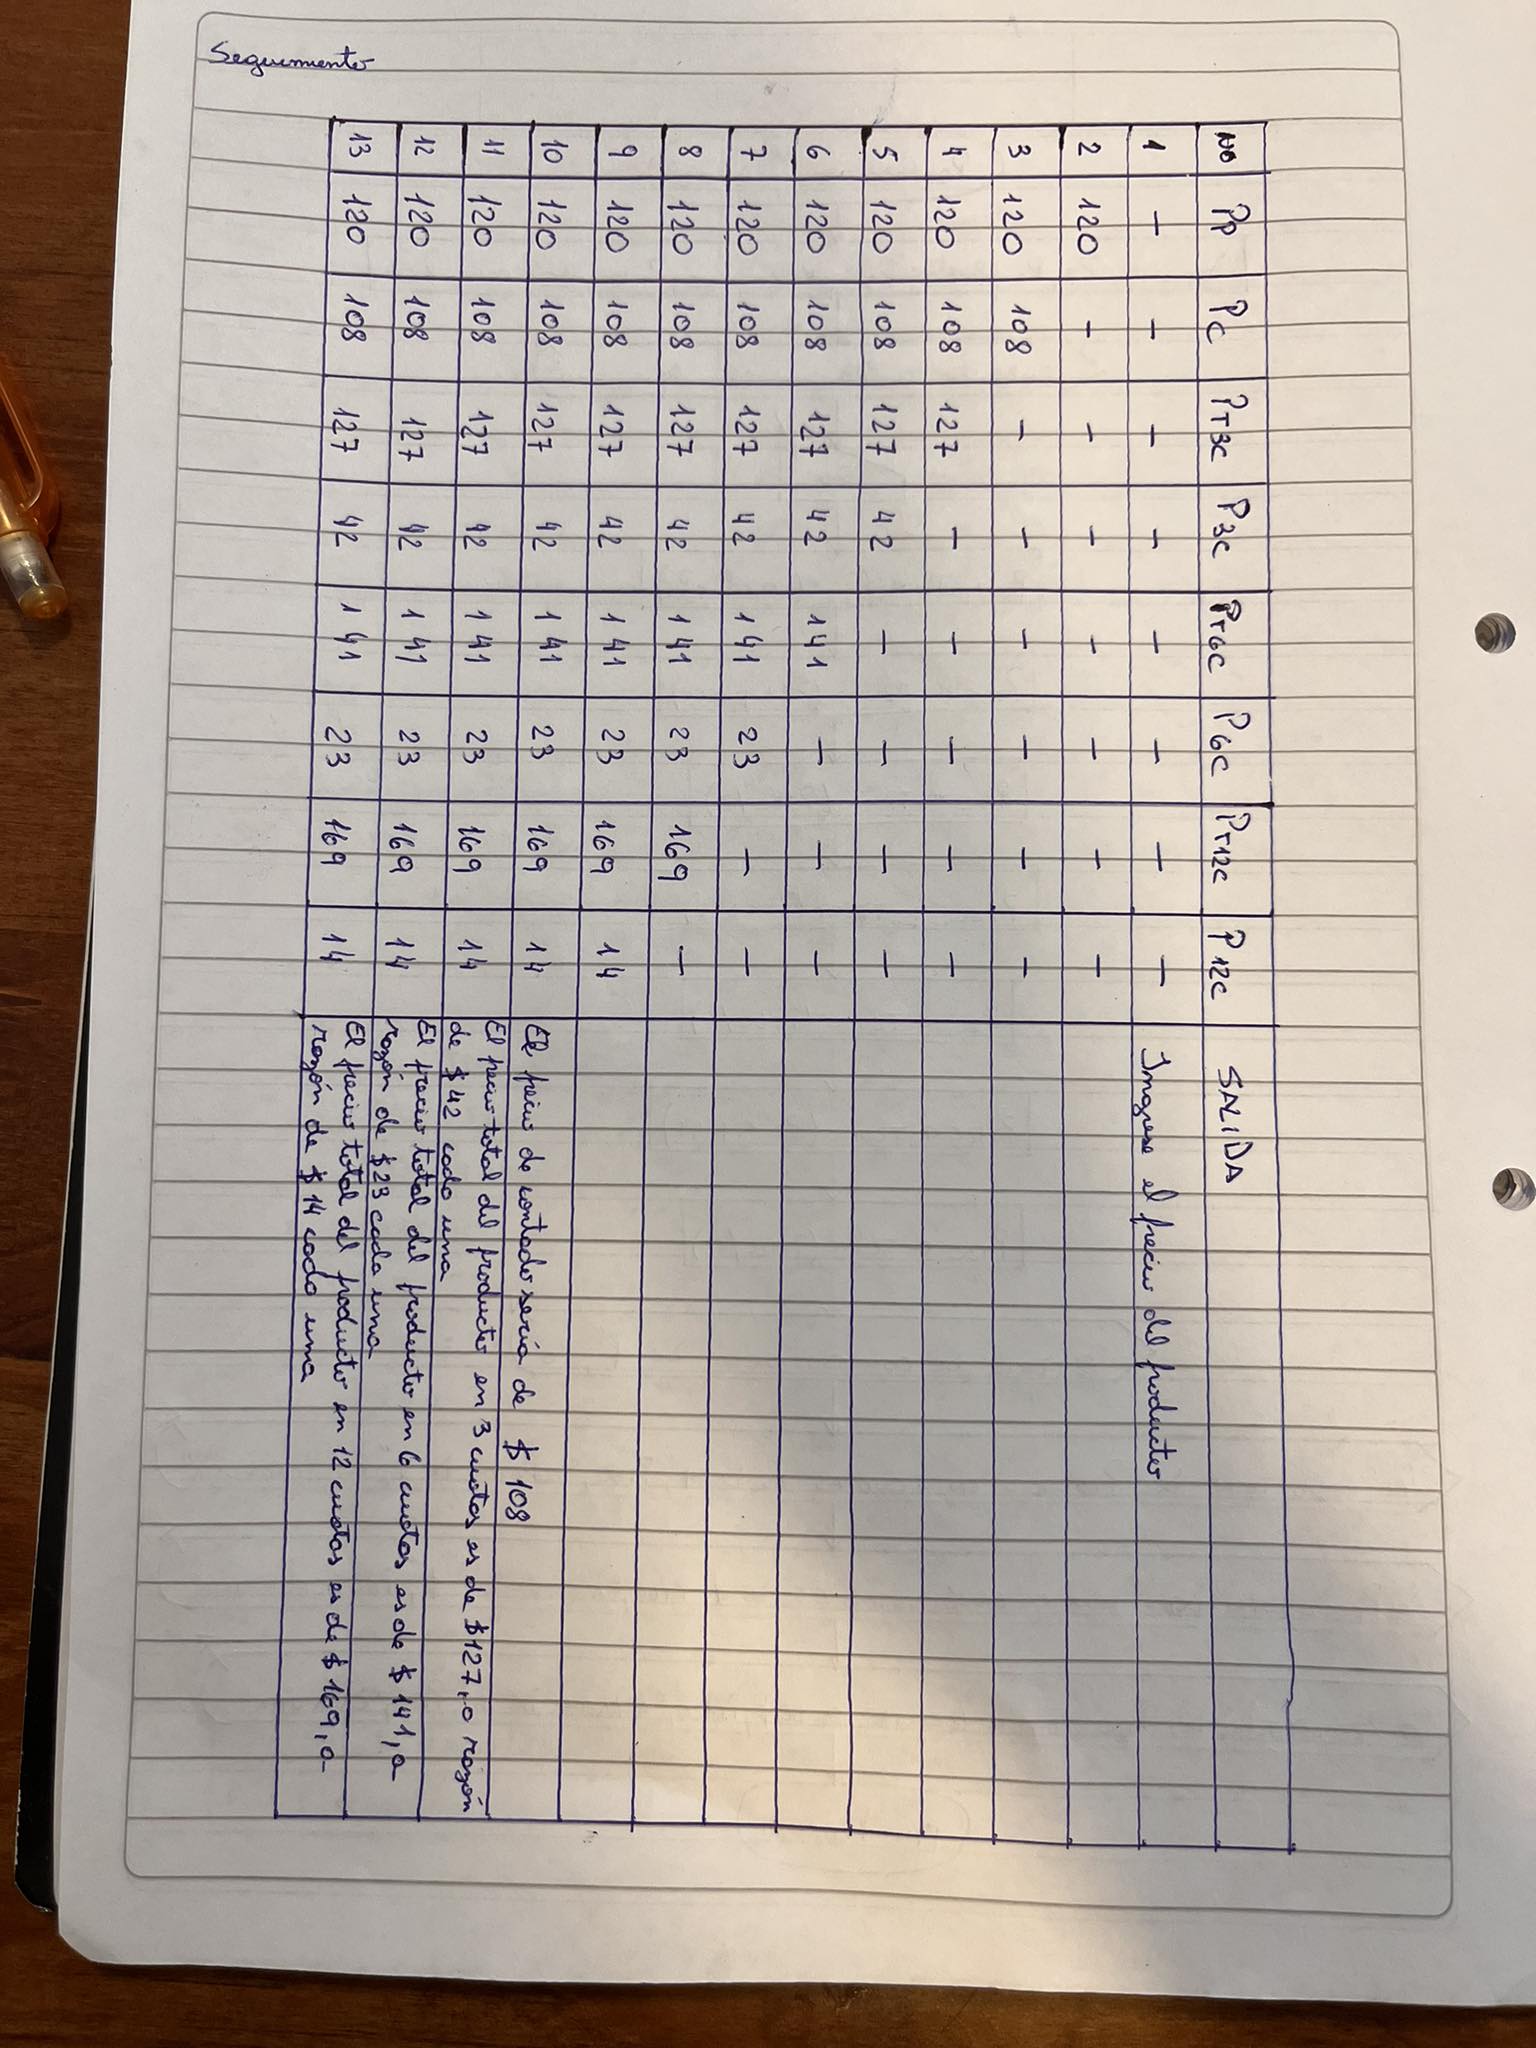 Seguimiento
Nº Pp Pc PT3C P3C PT6C P6C PT12C P12C SALIDA
1 - - - - - - - - Ingrese el precio del producto
2 120 - - - - - - -
3 120 108 - - - - - -
4 120 108 127 - - - - -
5 120 108 127 42 - - - -
6 120 108 127 42 141 - - -
7 120 108 127 42 141 23 - -
8 120 108 127 42 141 23 169 -
9 120 108 127 42 141 23 169 14
10 120 108 127 42 141 23 169 14 El precio de contado sería de $ 108
11 120 108 127 42 141 23 169 14 El precio total del producto en 3 cuotas es de $127, a razón
de $42 cada una
12 120 108 127 42 141 23 169 14 El precio total del producto en 6 cuotas es de $ 141, a
razón de $23 cada una
13 120 108 127 42 141 23 169 14 El precio total del producto en 12 cuotas es de $ 169, a
razón de $14 cada una